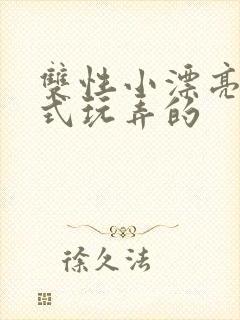 雙性小漂亮
式玩弄的
徐久法